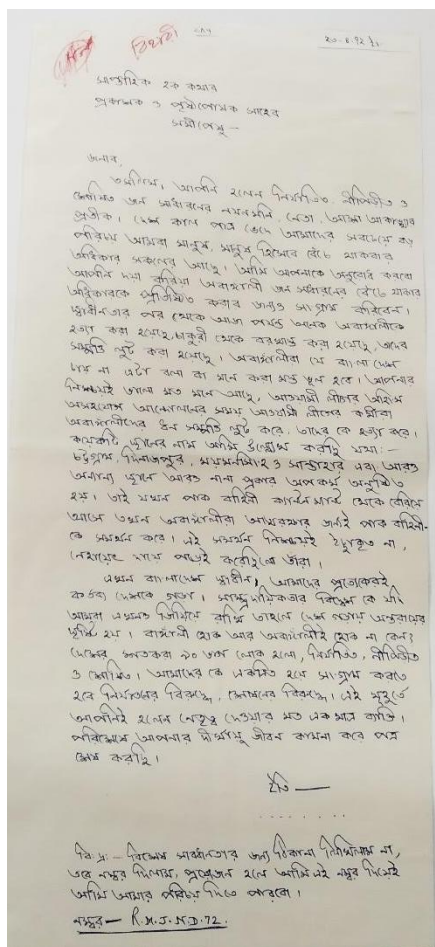 বিহারী
২০.৪.৭২ ইং
সাপ্তাহিক হক কথার
প্রকাশক ও পৃষ্ঠপোষক সাহেব
সমীপেষু —
জনাব,
তসলিম। আপনি হলেন নির্যাতিত, নীপিড়ীত ও
শোষিত জন সাধারনের নয়নমনি, নেতা, আশা আকাঙ্খার
প্রতীক। দেশ কাল পাত্র ভেদে আমাদের সবচেয়ে বড়
পরিচয় আমরা মানুষ, মানুষ হিসেবে বেঁচে থাকবার
অধিকার সকলের আছে। আমি আপনাকে অনুরোধ করবো
আপনি দয়া করিয়া অবাঙ্গালী জন সাধারনের বেঁচে থাকার
অধিকারকে প্রতিষ্ঠিত করার জন্যও সংগ্রাম করিবেন।
স্বাধীনতার পর থেকে আজ পর্যন্ত অনেক অবাঙ্গালীকে
হত্যা করা হয়েছে, চাকুরী থেকে বরখাস্ত করা হয়েছে, তাদের
সম্পত্তি লুট করা হয়েছে। অবাঙ্গালীরা যে বাংলা দেশ
চায় না এটা বলা বা মনে করা মস্ত ভুল হবে। আপনার
নিশ্চয়ই ভালো মত মনে আছে, আওয়ামী লীগের অহিংস
অসহযোগ আন্দোলনের সময় আওয়ামী লীগের কর্মীরা
অবাঙ্গালীদের ধন সম্পত্তি লুট করে, তাদের কে হত্যা করে।
কয়েকটি স্থানের নাম আমি উল্লেখ করছি যথা:–
চট্টগ্রাম, দিনাজপুর, ময়মনসিংহ ও সান্তাহার এবং আরও
অন্যান্য স্থানে আরও নানা প্রকার অপকর্ম অনুষ্ঠিত
হয়। তাই যখন পাক বাহিনী ক্যান্টনমেন্ট থেকে বেরিয়ে
আসে তখন অবাঙ্গালীরা আত্মরক্ষার জন্যই পাক বাহিনী-
কে সমর্থন করে। এই সমর্থন নিশ্চয়ই ইচ্ছাকৃত না,
নেহায়েৎ দায়ে পড়েই করেছিলো তাঁরা।
এখন বাংলাদেশ স্বাধীন, আমাদের প্রত্যেকেরই
কর্তব্য দেশকে গড়া। সাম্প্রদায়িকতার বিদ্বেষ কে যদি
আমরা এখনও জিয়িয়ে রাখি তাহলে দেশ গড়ায় অন্তরায়ের
সৃষ্টি হয়। বাঙ্গালী হোক আর অবাঙ্গালীই হোক না কেন?
দেশের শতকরা ৯০ জন লোক হলো, নির্যাতিত, নীপিড়ীত
ও শোষিত। আমাদের কে একত্রিত হয়ে সংগ্রাম করতে
হবে নির্যাতনের বিরুদ্ধে, শোষনের বিরুদ্ধে। এই মুহূর্তে
আপনিই হলেন নেতৃত্ব দেওয়ার মত এক মাত্র ব্যক্তি।
পরিশেষে আপনার দীর্ঘায়ু জীবন কামনা করে পত্র
শেষ করছি।
ইতি —
বি: দ্র: – বিশেষ সাবধানতার জন্য ঠিকানা লিখিলাম না,
তবে নম্বর দিলাম, প্রয়োজন হলে আমি এই নম্বর দিয়েই
আমি আমার পরিচয় দিতে পারবো।
নম্বর — R.M.J.N.D.72.